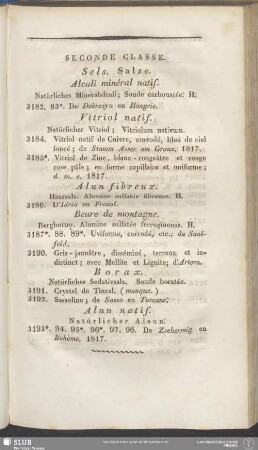 SECONDE CLASSE.
Sels. Salze.
Alcali minéral natif.
Natürliches Mineralalcali; Soude carbonatée. H.
3182. 83*. De Debrezyn en Hongrie.
Vitriol natif.
Natürlicher Vitriol; Vitriolum nativum.
3184. Vitriol natif de Cuivre, corrodé, bleu de ciel
foncé; de Stamm Asser am Graul. 1817.
3185*. Vitriol de Zinc, blanc-rougeâtre et rouge
rose pâle; en forme capillaire et uniforme;
d. m. e. 1817.
Alun fibreux.
Haarsalz. Alumine sulfatée fibreuse. H.
3186. D'Idria en Frioul.
Beure de montagne.
Bergbutter. Alumine sulfatée ferrugineuse. H.
3187*. 88. 89*. Uviforme, corrodé, etc.; de Saal-
feld.
3190. Gris-jaunâtre, disséminé, terreux et in-
distinct; avec Mellite et Lignite; d'Artern.
Borax.
Natürliches Sedativsalz. Soude boratée.
3191. Crystal de Tincal. (manque.)
3192. Sassolino; de Sasso en Toscane.
Alun natif.
Natürlicher Alaun.
3193*. 94. 95*. 96*. 97. 98. De Zschermig en
Bohème. 1817.
SLUB